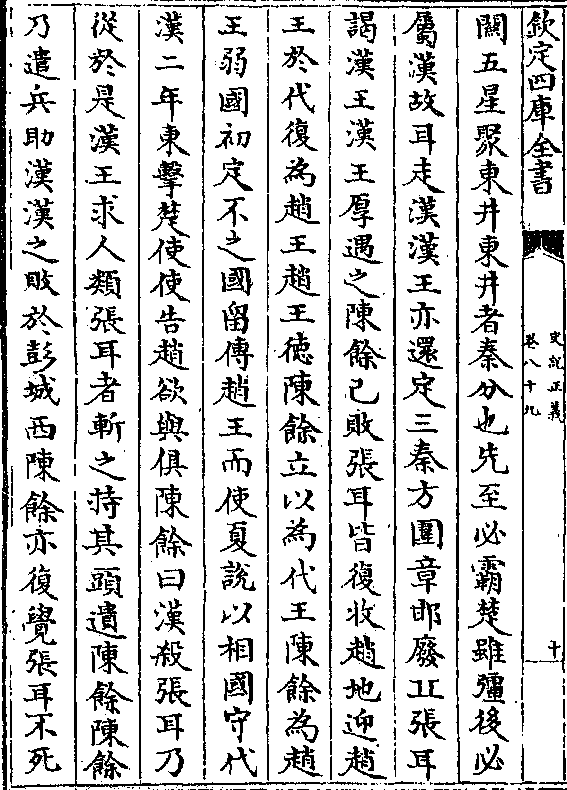 欽定四庫全書
史記正義
卷八十九
十
關五星聚東井東井者秦分也先至必霸楚雖彊後必
屬漢故耳走漢漢王亦還定三秦方圍章邯廢丘張耳
謁漢王漢王厚遇之陳餘已敗張耳皆復收趙地迎趙
王於代復為趙王趙王德陳餘立以為代王陳餘為趙
王弱國初定不之國留傳趙王而使夏說以相國守代
漢二年東擊楚使使告趙欲與俱陳餘曰漢殺張耳乃
從於是漢王求人類張耳者斬之持其頭遺陳餘陳餘
乃遣兵助漢漢之敗於彭城西陳餘亦復覺張耳不死